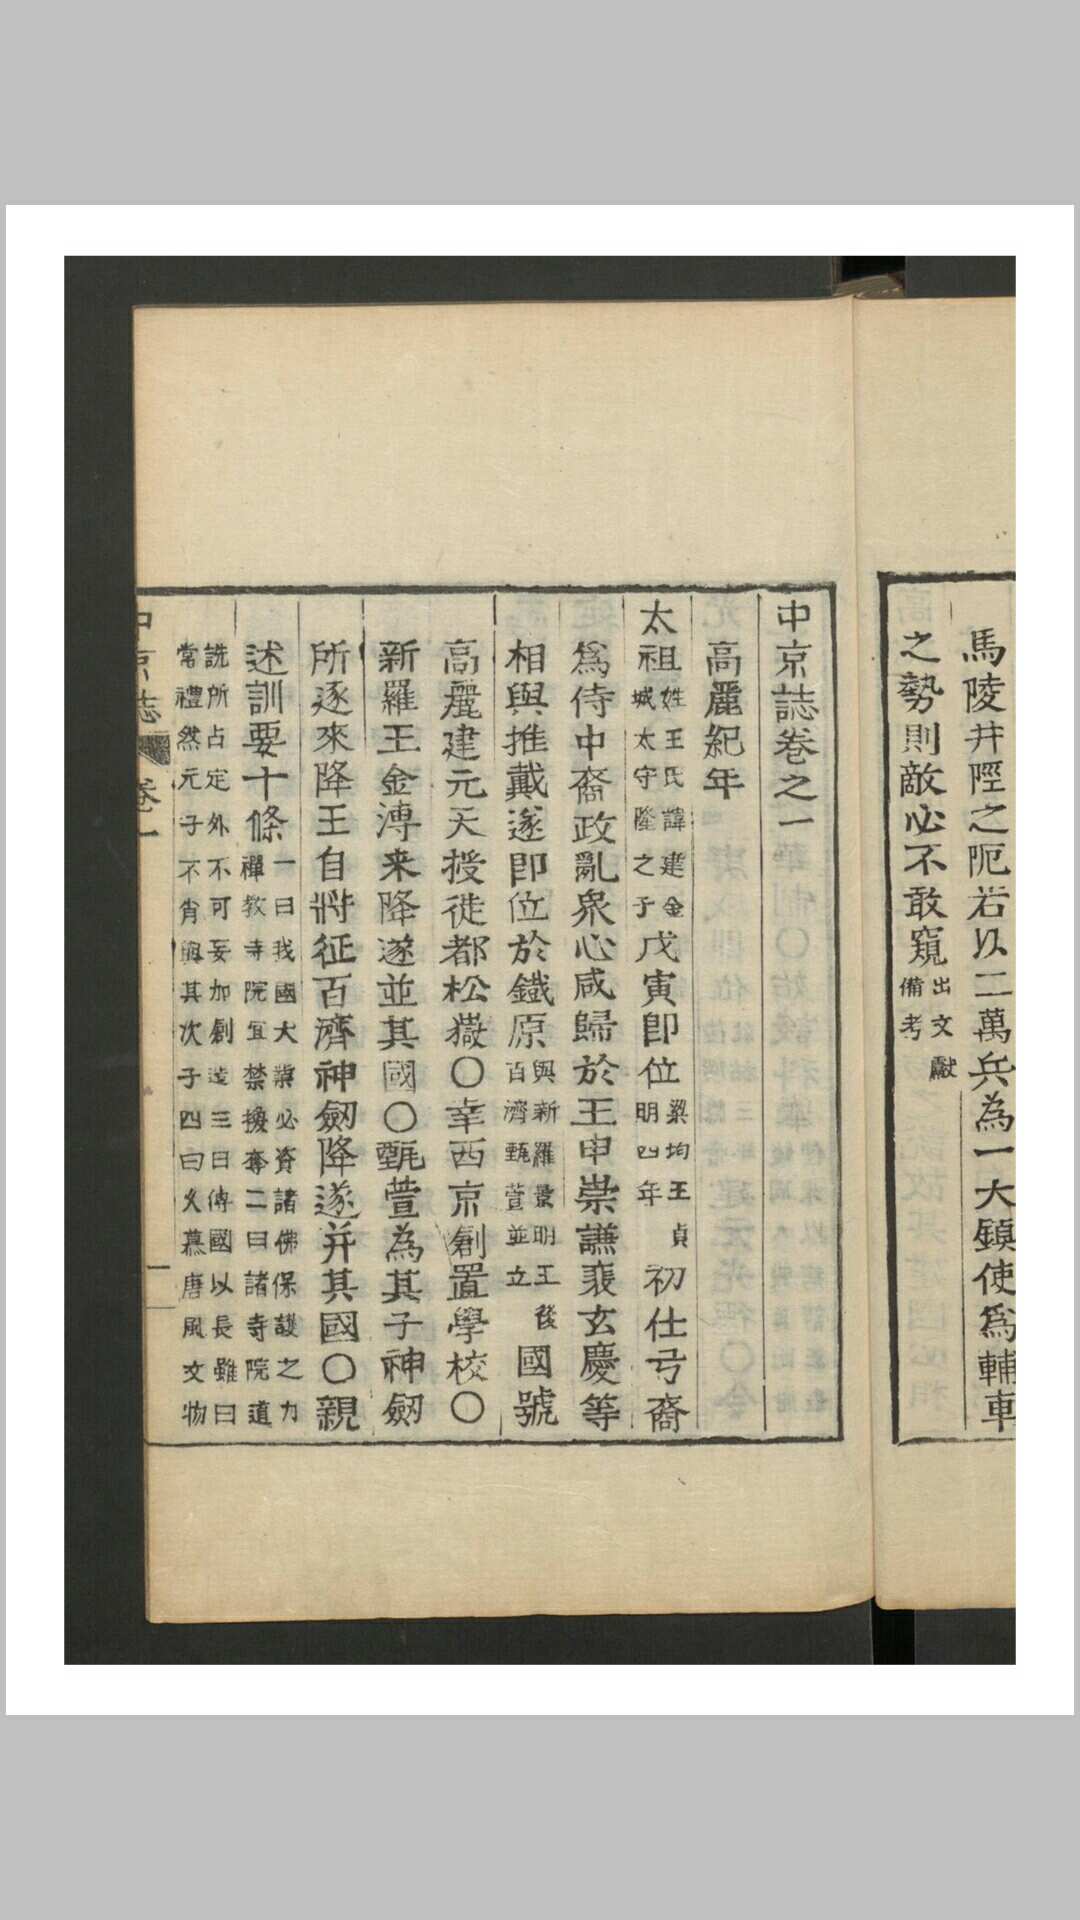 馬陵井陘之阨若以二萬兵為一大鎮使爲輔車
之勢則敵必不敢窺出文獻備考
中京誌卷之一
高麗紀年
太祖姓王氏諱建金城太守隆之子戊寅即位梁均王貞明四年初仕弓裔
爲侍中裔政亂衆心咸歸於王申崇謙裴玄慶等
相與推戴遂即位於鐵原與新羅景明王後百濟甄萱並立國號
高麗建元天授徙都松嶽○幸西京創置學校○
新羅王金溥来降遂並其國○甄萱為其子神劒
所逐來降王自將征百濟神劒降遂并其國○親
述訓要十條一曰我國大業必資諸佛保護之力禪教寺院宜禁換奪二曰諸寺院道
詵所占定外不可妄加創造三曰傳國以長雖曰常禮然元子不肖與其次子四曰久慕唐風文物
中京誌 卷一 一